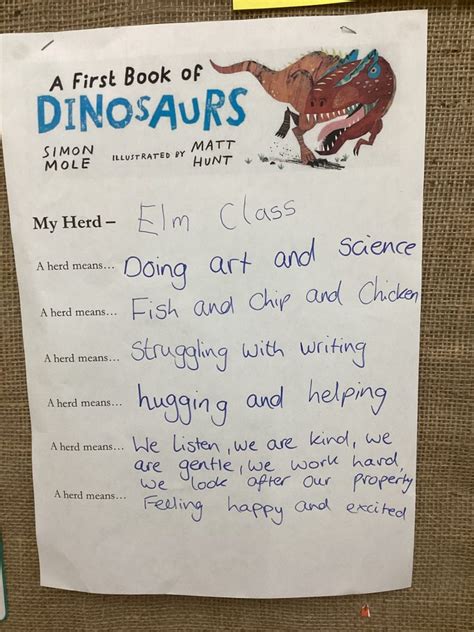 A First Book of
DINOSAURS
SIMON MOLE ILLUSTRATED BY MATT HUNT
My Herd – Elm Class
A herd means... Doing art and science
A herd means... Fish and chip and Chicken
A herd means... Struggling with writing
A herd means... hugging and helping
A herd means... We listen, we are kind, we
are gentle, we work hard,
we look after our property
A herd means... Feeling happy and excited